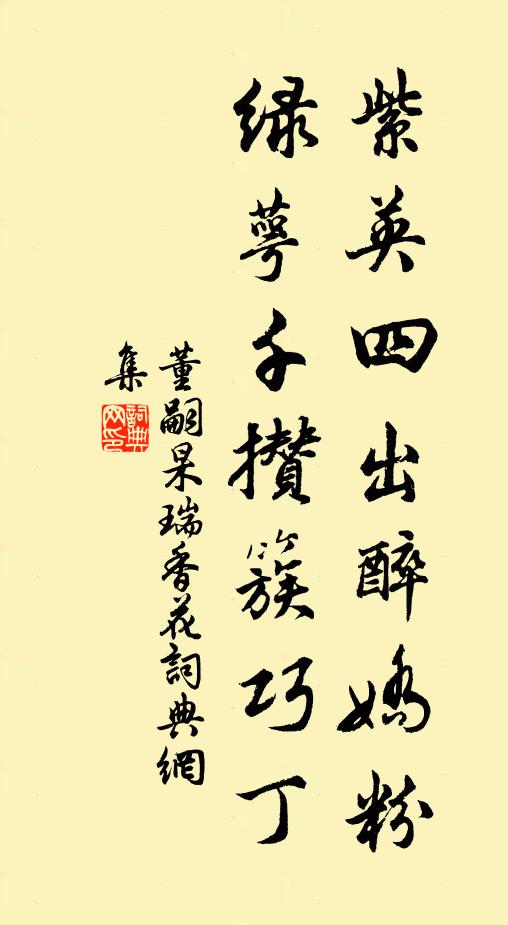 紫英四出醉嬌粉
綠萼千攢簇巧丁
董嗣杲瑞香花詞典網
集
詞典网印